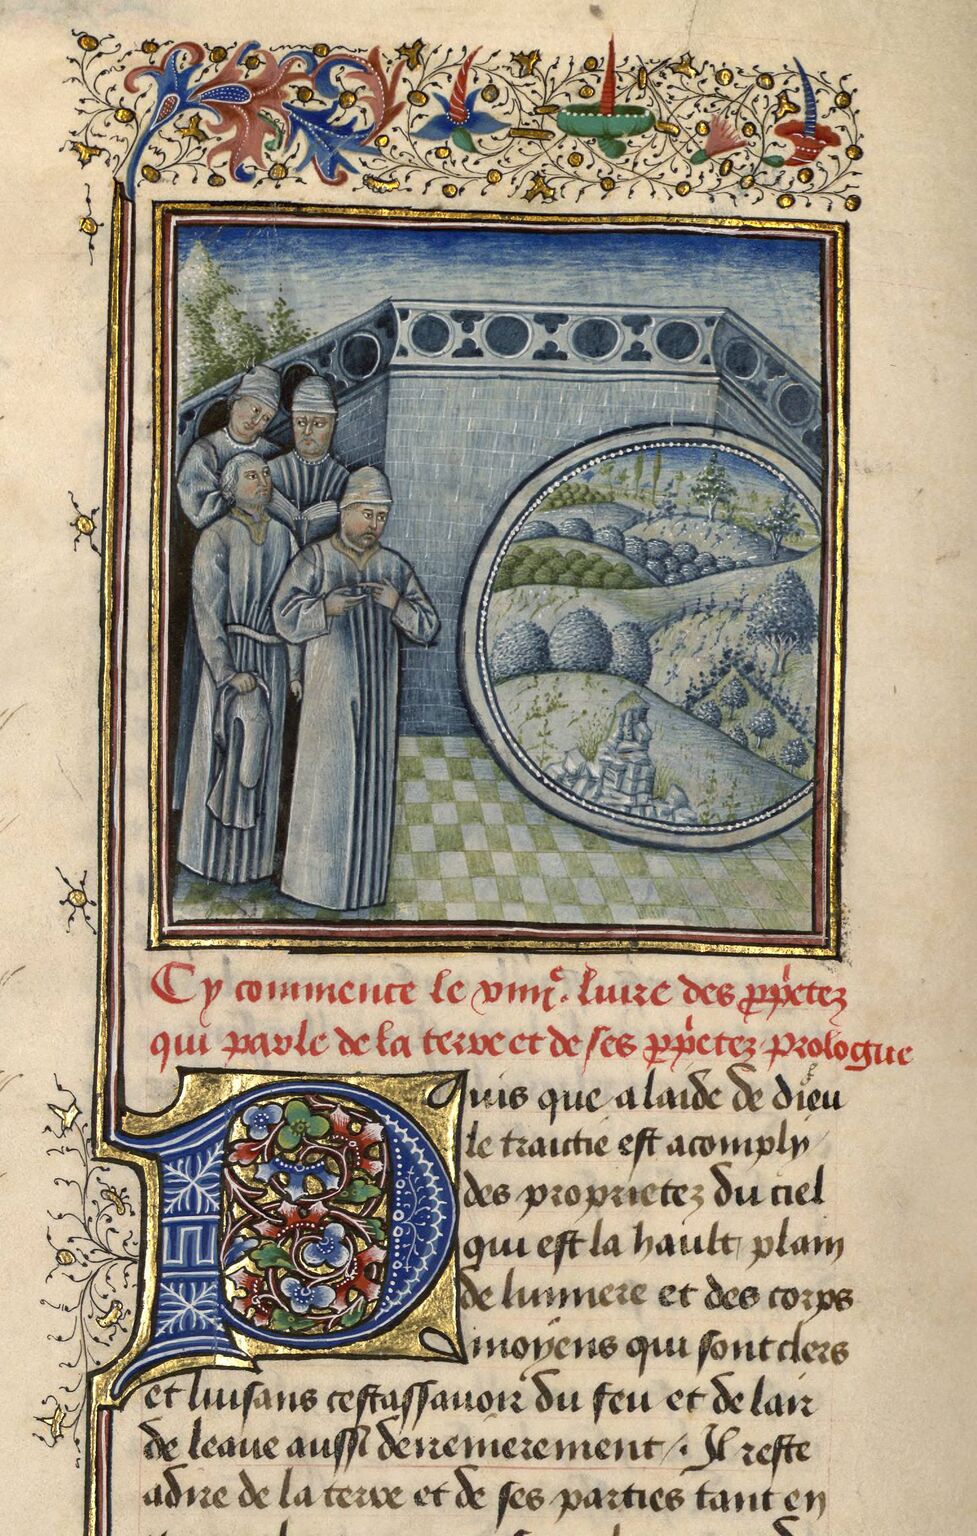 Cy commence le xiiii.e livre des pp̃etez
qui parle de la terre et de ses pp̃etez prologue
Puis que a laide de dieu
le traictie est acomply
des proprietez du ciel
qui est la hault plain
de lumiere et des corps
moyens qui sont clers
et luisans cestassavoir du feu et de lair
de leaue aussi derrenierement /. Il reste
a dire de la terre et de ses parties tant en